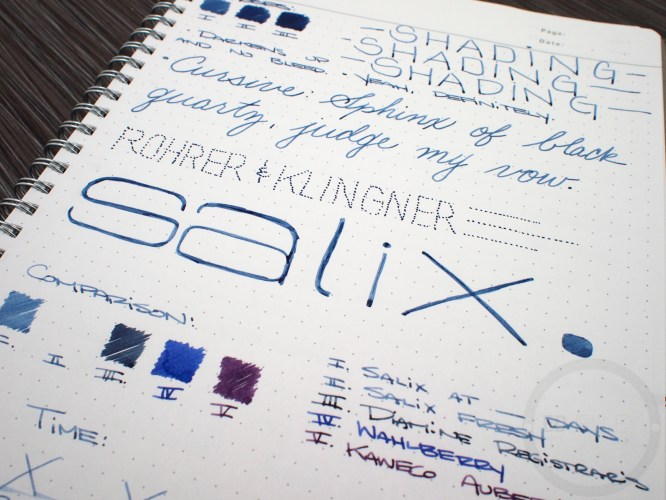 I II III
Page:
Date:
-SHADING-
-SHADING-
-SHADING-
• DARKENS UP
AND NO BLEED.
• YEAH, DEFINITELY.
• Cursive: Sphinx of black
quartz, judge my vow.
ROHRER & KLINGNER
salix.
COMPARISON:
I. II. III. IV. V
I. SALIX AT — DAYS
II. SALIX FRESH
III. DIAMINE REGISTRAR'S
IV. WAHLBERRY
V. KAWECO AUBE
TIME:
X X